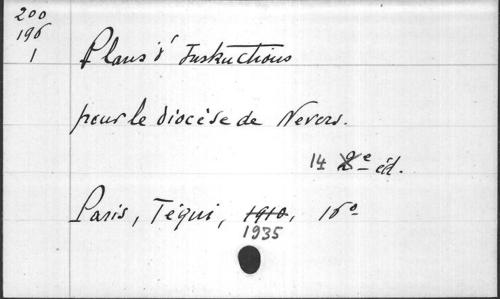 200
196
1
Plans d'Instructions
pour le diocèse de Nevers.
14 2e éd.
Paris, Téqui, 1910, 16o
1935